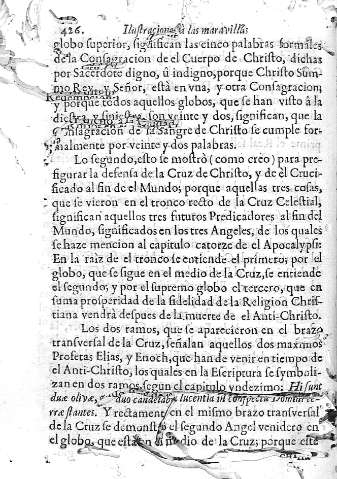 426. Ilustraciones à las maravillas
globo superior, significan las cinco palabras formales
de la Consagracion de el Cuerpo de Christo, dichas
por Sacerdote digno, ù indigno, porque Christo Sum-
mo Rey, y Señor, està en vna, y otra Consagracion;
y porque todos aquellos globos, que se han visto à la
diestra, y siniestra, son veinte y dos, significan, que la
Consagracion de la Sangre de Christo se cumple for-
malmente por veinte y dos palabras.
Lo segundo, esto se mostrò (como creo) para pre-
figurar la defensa de la Cruz de Christo, y de èl Cruci-
ficado al fin de el Mundo; porque aquellas tres cosas,
que se vieron en el tronco recto de la Cruz Celestial,
significan aquellos tres futuros Predicadores al fin del
Mundo, significados en los tres Angeles, de los quales
se haze mencion al capitulo catorze de el Apocalypsi:
En la raìz de el tronco se entiende el primero; por el
globo, que se sigue en el medio de la Cruz, se entiende
el segundo; y por el supremo globo el tercero, que en
suma prosperidad de la fidelidad de la Religion Chris-
tiana vendrà despues de la muerte de el Anti-Christo.
Los dos ramos, que se aparecieron en el brazo
transversal de la Cruz, señalan aquellos dos maximos
Profetas Elias, y Enoch, que han de venir en tiempo de
el Anti-Christo, los quales en la Escriptura se symboli-
zan en dos ramos, segun el capitulo vndezimo: Hi sunt
duæ olivæ, duo candelabra lucentia in conspectu Domini ter-
ræ stantes. Y rectamente en el mismo brazo transversal
de la Cruz se demonstrò el segundo Angel venidero en
el globo, que està en el medio de la Cruz; porque este